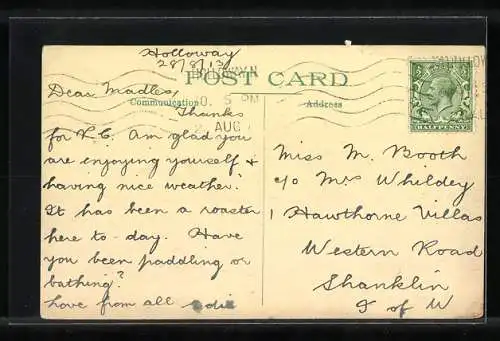 Holloway
28/8/13
POST CARD
Communication
Address
5 PM
AUG
HALFPENNY
Dear Madles,
Thanks
for P.C. Am glad you
are enjoying yourself &
having nice weather.
It has been a roaster
here to-day. Have
you been paddling or
bathing?
Love from all Edie
Miss M. Booth
c/o Mrs Whildey
1 Hawthorne Villas
Western Road
Shanklin
I of W